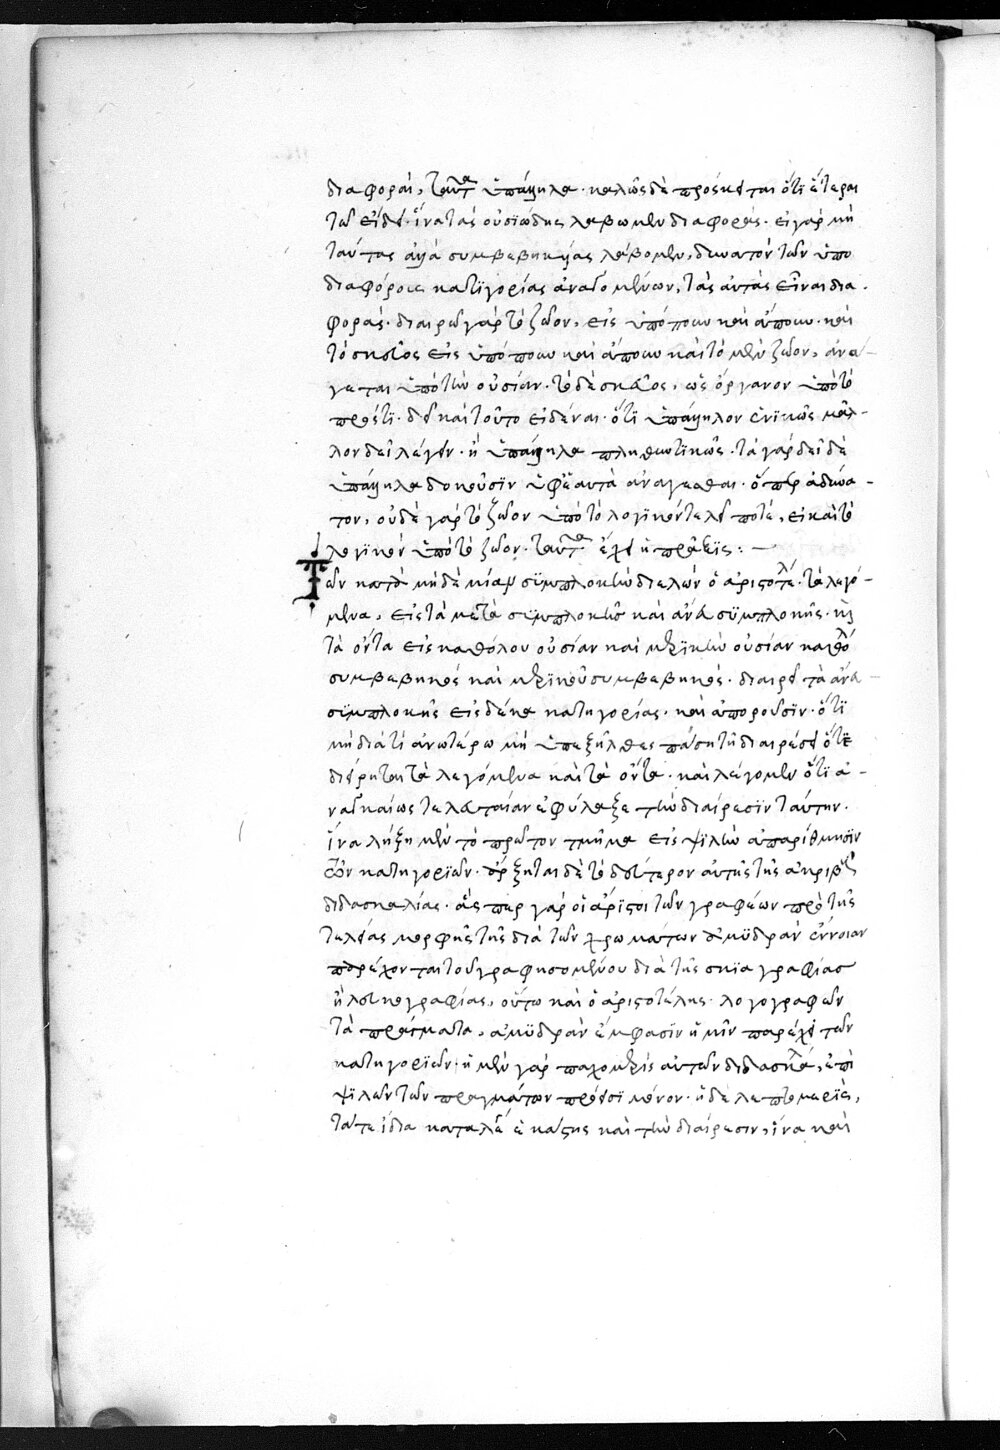 διαφοραὶ, ταῦτα ὑπάλληλα· καλῶς δὲ πρόσκειται ὅτι ἕτεραι
τῷ εἴδει· ἵνα τὰς οὐσιώδεις λάβωμεν διαφοράς· εἰ γὰρ μὴ
ταύτας ἀλλὰ συμβεβηκυίας λάβομεν, δυνατὸν τῶν ὑπὸ
διαφόροις κατηγορίας ἀναγομένων, τὰς αὐτὰς εἶναι δια-
φοράς· διαιρῶ γὰρ τὸ ζῶον, εἰς ὑπόπουν καὶ ἄπουν· καὶ
τὸ σκεῦος εἰς ὑπόπουν καὶ ἄπουν καὶ τὸ μὲν ζῶον, ἀνά-
γεται ὑπὸ τὴν οὐσίαν· τὸ δὲ σκεῦος, ὡς ὄργανον ὑπὸ τὸ
πρός τι· δεῖ καὶ τοῦτο εἰδέναι· ὅτι ὑπάλληλον ἑνικῶς μᾶλ-
λον δεῖ λέγειν· ἢ ὑπάλληλα πληθυντικῶς· τὰ γὰρ δεῖ δὲ
ὑπάλληλα δοκοῦσιν ὑφ' ἑαυτὰ ἀναγεσθαι· ὅπερ ἀδύνα-
τον, οὐδὲ γὰρ τὸ ζῶον ὑπὸ τὸ λογικὸν τελεῖ ποτέ, εἰ καὶ τὸ
λογικὸν ὑπὸ τὸ ζῶον· ταῦτα ἔχει ἡ πρᾶξις: —
Τῶν κατὰ μηδεμίαν συμπλοκὴν διελὼν ὁ ἀριστοτέλης· τὰ λεγό-
μενα, εἰς τὰ μετὰ συμπλοκῆς καὶ ἄνευ συμπλοκῆς· καὶ
τὰ ὄντα εἰς καθόλου οὐσίαν καὶ μερικὴν οὐσίαν καὶ καθόλου
συμβεβηκὸς καὶ μερικὸν συμβεβηκός· διαιρεῖ τὰ ἄνευ
συμπλοκῆς εἰς δέκα κατηγορίας· καὶ ἀποροῦσιν· ὅτι
μὴ διατί ἀνωτέρω μὴ ὑπεξῆλθες πάσῃ τῇ διαιρέσει ὅτε
διῄρηται τὰ λεγόμενα καὶ τὰ ὄντα· καὶ λέγομεν ὅτι ἀ-
ναγκαίως τελευταίαν ἐφύλαξε τὴν διαίρεσιν ταύτην·
ἵνα λήξῃ μὲν τὸ πρῶτον τμῆμα εἰς ψιλὴν ἀπαρίθμησιν
τῶν κατηγοριῶν· ἄρξηται δὲ τὸ δεύτερον αὐτῆς τῆς ἀκριβοῦς
διδασκαλίας· ὥσπερ γὰρ οἱ ἄριστοι τῶν γραφέων πρὸ τῆς
τελείας μορφῆς τῆς διὰ τῶν χρωμάτων ἀμυδρὰν ἔννοιαν
παρέχονται τοῦ γραφησομένου διὰ τῆς σκιαγραφίας
ἢ λευκογραφίας, οὕτω καὶ ὁ ἀριστοτέλης· λογογραφῶν
τὰ πράγματα, ἀμυδρὰν ἔμφασιν ἡμῖν παρέχει τῶν
κατηγοριῶν· ἡ μὲν γὰρ παχυμερὴς αὐτῶν διδασκαλία, ἐπὶ
ψιλῶν τῶν πραγμάτων πρόεισι μόνον· ἡ δὲ λεπτομερὴς,
τά τε ἴδια καταλέγει ἑκάστης καὶ τὴν διαίρεσιν, ἵνα καὶ